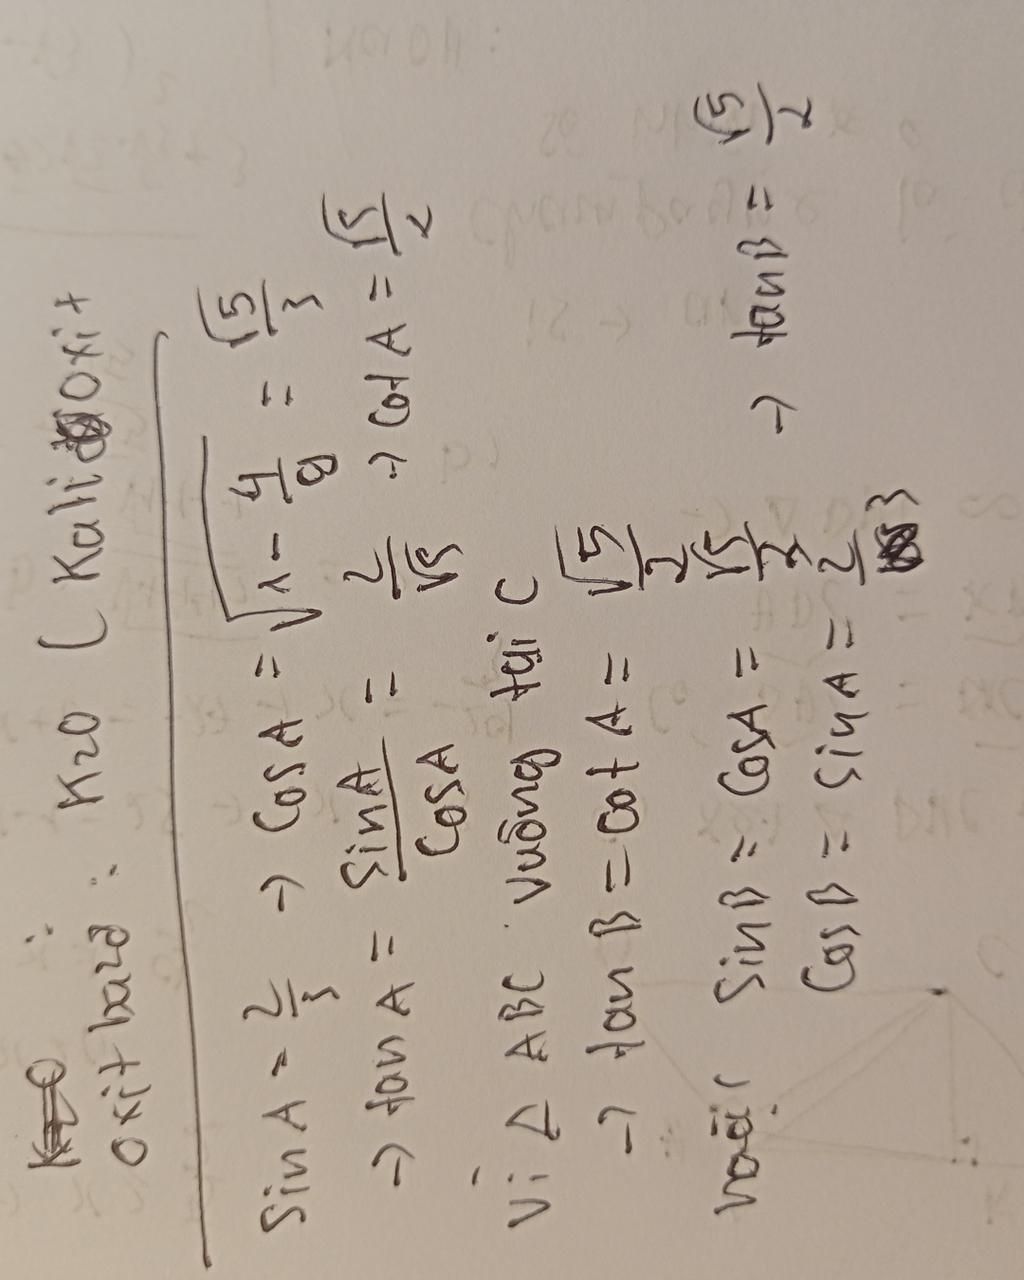 oxit bazơ: K2O (Kali oxit
Sin A = 2/3 → Cos A = √(1 - 4/9) = √5/3
→ tan A = Sin A/Cos A = 2/√5 → Cot A = √5/2
Vì Δ ABC vuông tại C
→ tan B = cot A = √5/2
hoặc Sin B = Cos A = √5/3 → tan B = √5/2
Cos B = Sin A = 2/3